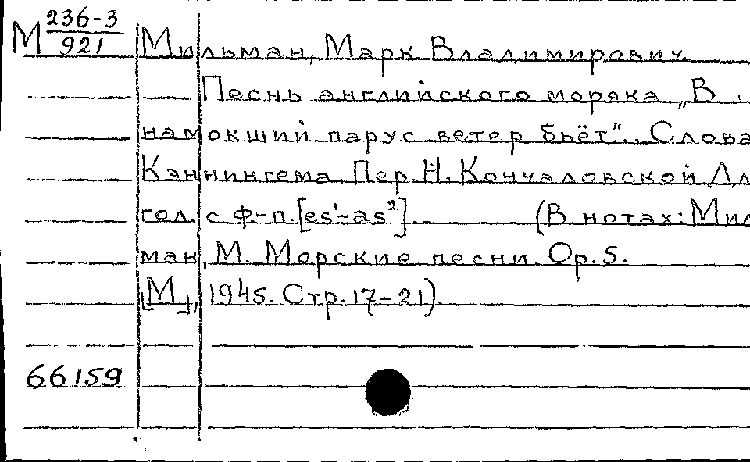 М 236-3
921
Мильман, Марк Владимирович.
Песнь английского моряка „В
намокший парус ветер бьёт". Слова
Каннингема. Пер. Н. Кончаловской. Дл
гол. с ф-п. [es¹-as²]. (В нотах: Мил
ман, М. Морские песни. Op. 5.
[М.], 1945. Стр. 17-21).
66159